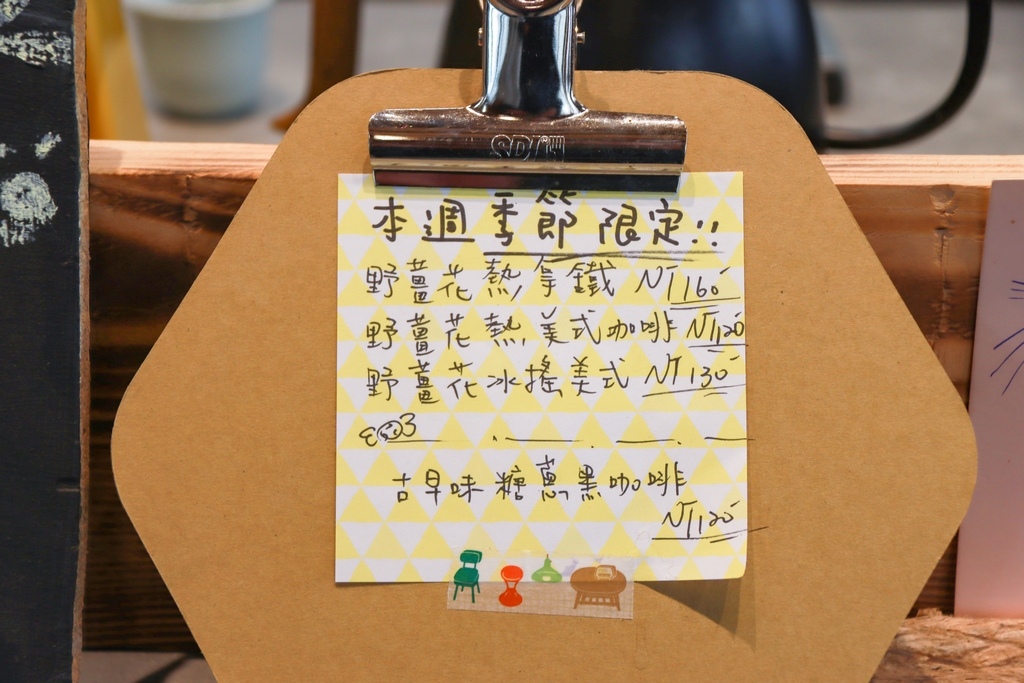 SDI
本週季節限定!!
野薑花熱拿鐵 NT160
野薑花熱美式咖啡 NT120
野薑花冰搖美式 NT130
古早味糖蔥黑咖啡
NT120